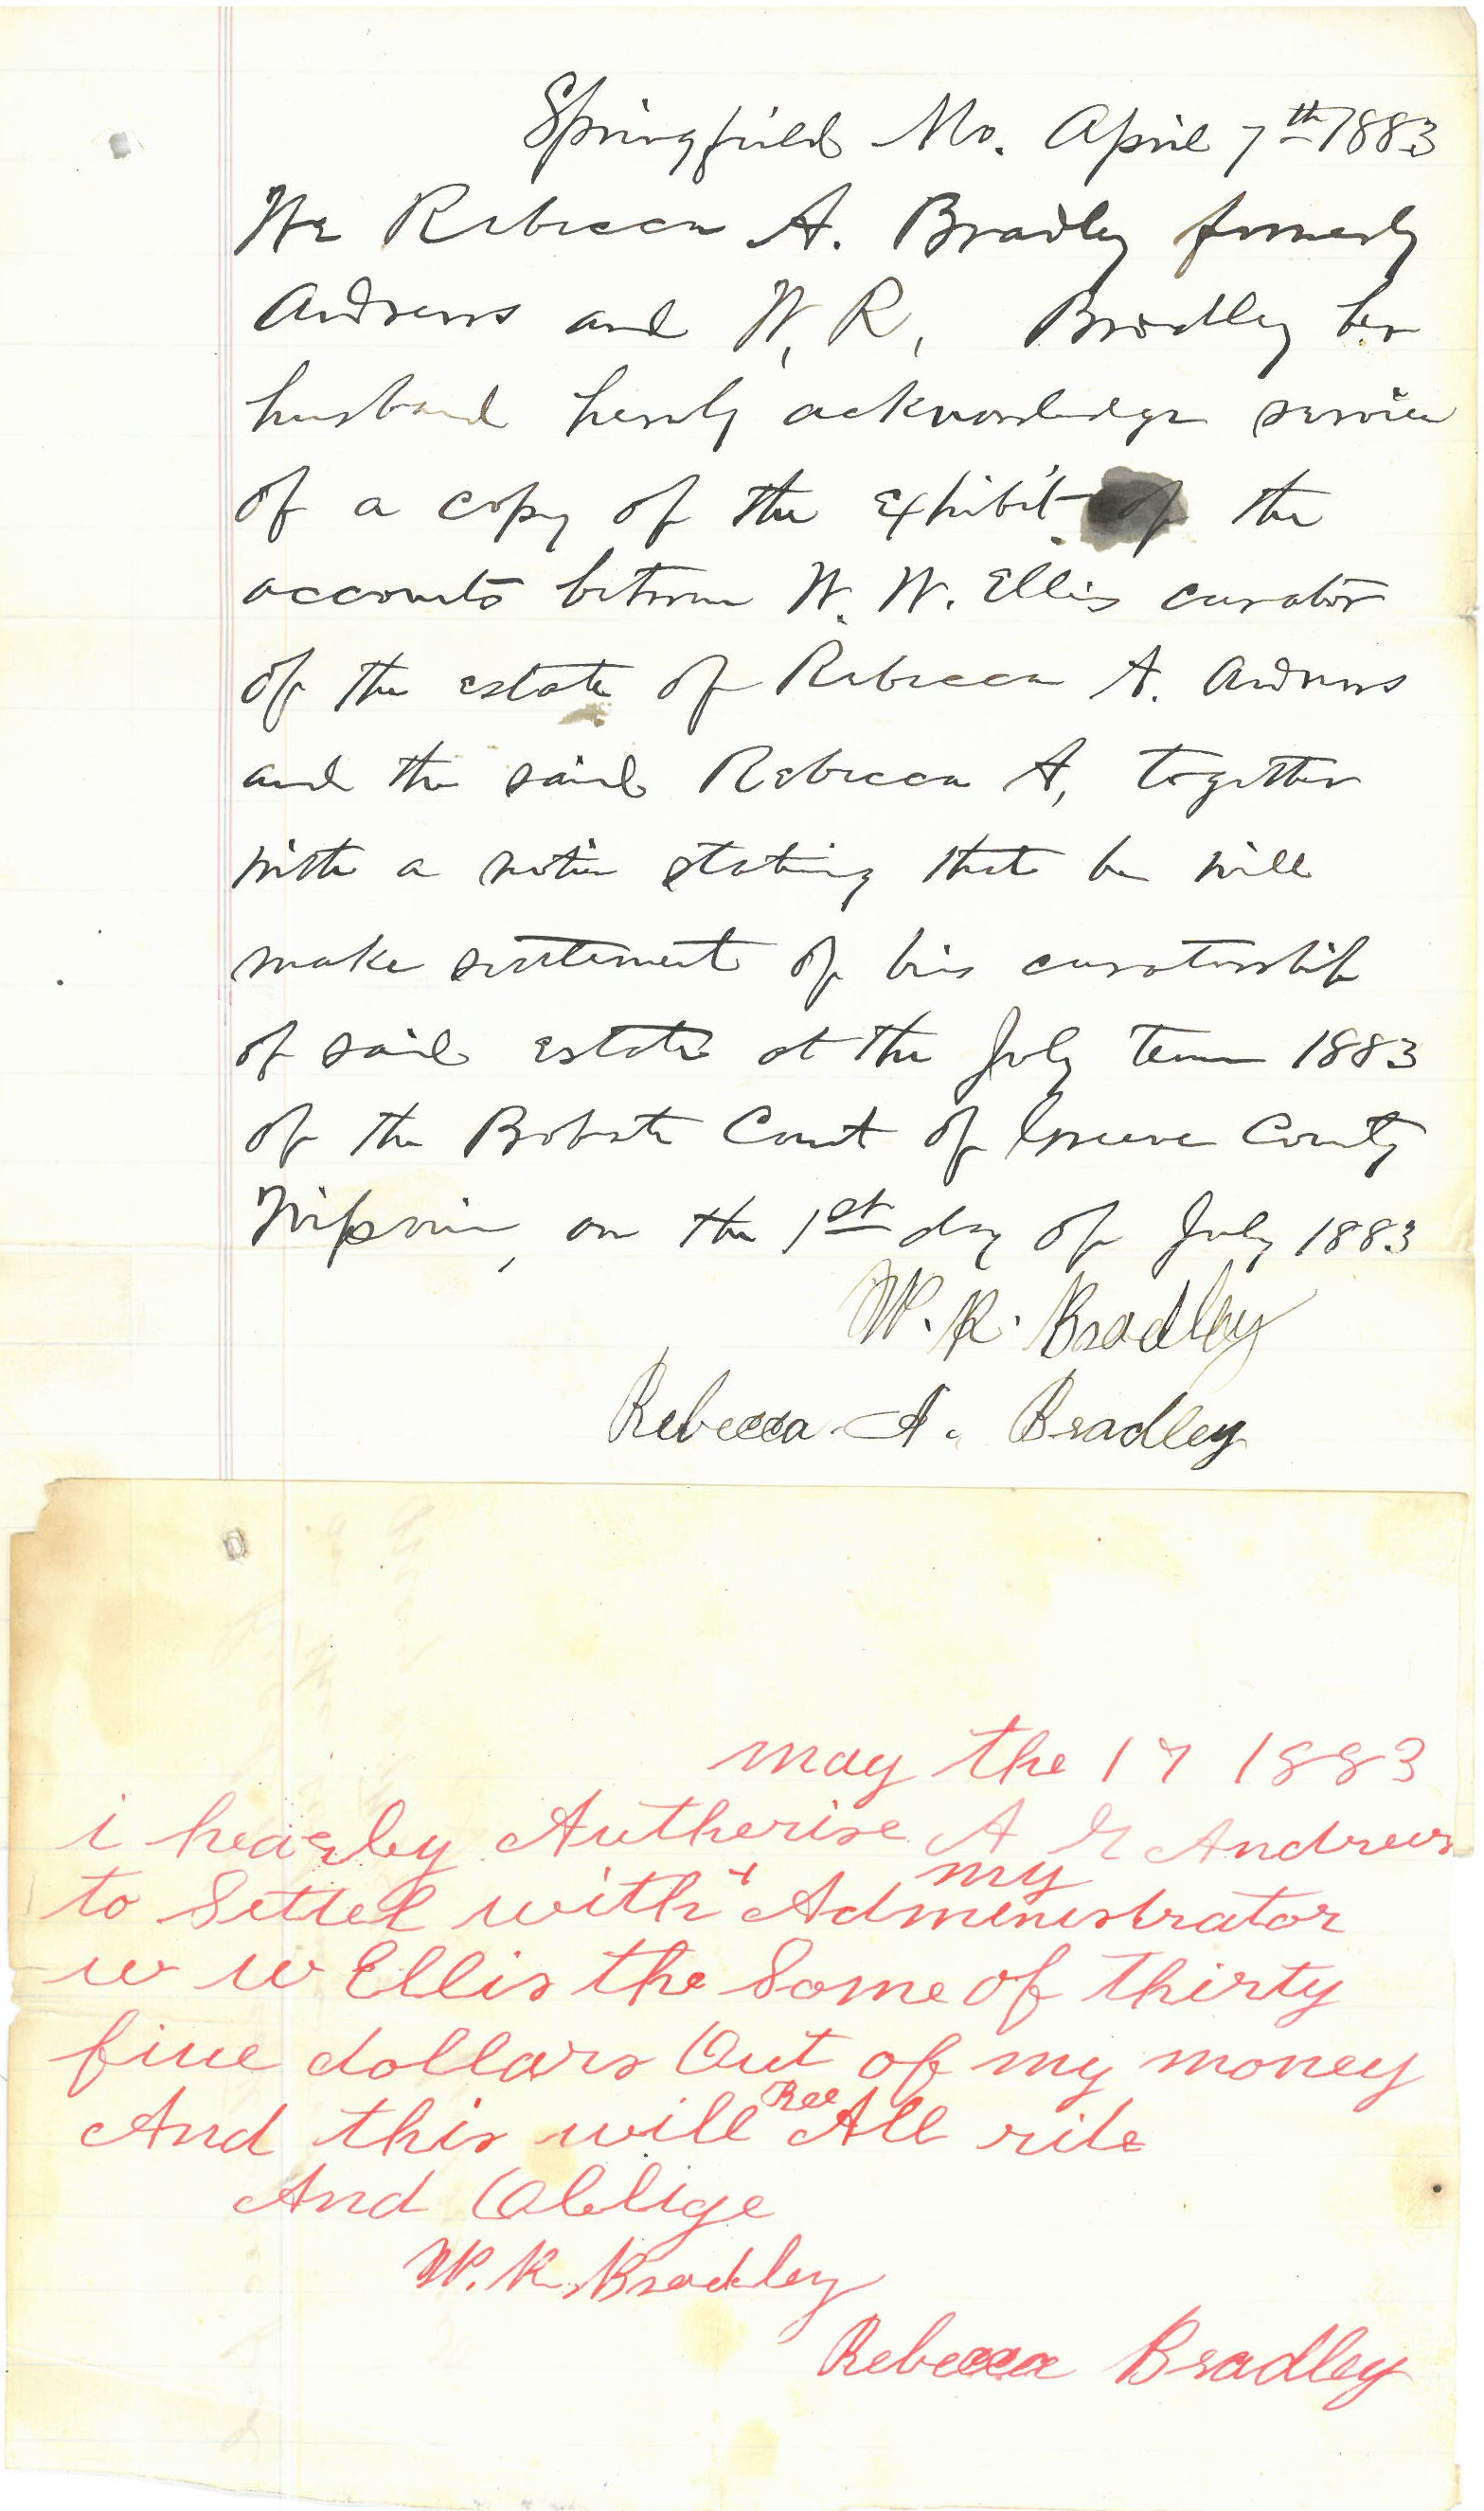 Springfield Mo. April 7th 1883
We Rebecca A. Bradley formerly
Andrews and W. R. Bradley her
husband hereby acknowledge service
of a copy of the exhibit of the
accounts between W. W. Ellis curator
of the estate of Rebecca A. Andrews
and the said Rebecca A, together
with a notice stating that he will
make settlement of his curatorship
of said estate at the July term 1883
of the Probate Court of Greene County
Missouri, on the 1st day of July 1883
W. R. Bradley
Rebecca A. Bradley
may the 17 1883
i hearby Autherise A Andrews
to Settel with + my Administrator
w w Ellis the Some of thirty
five dollars Out of my money
And this will Bee All rite
And Oblige
W. R. Bradley
Rebecca Bradley